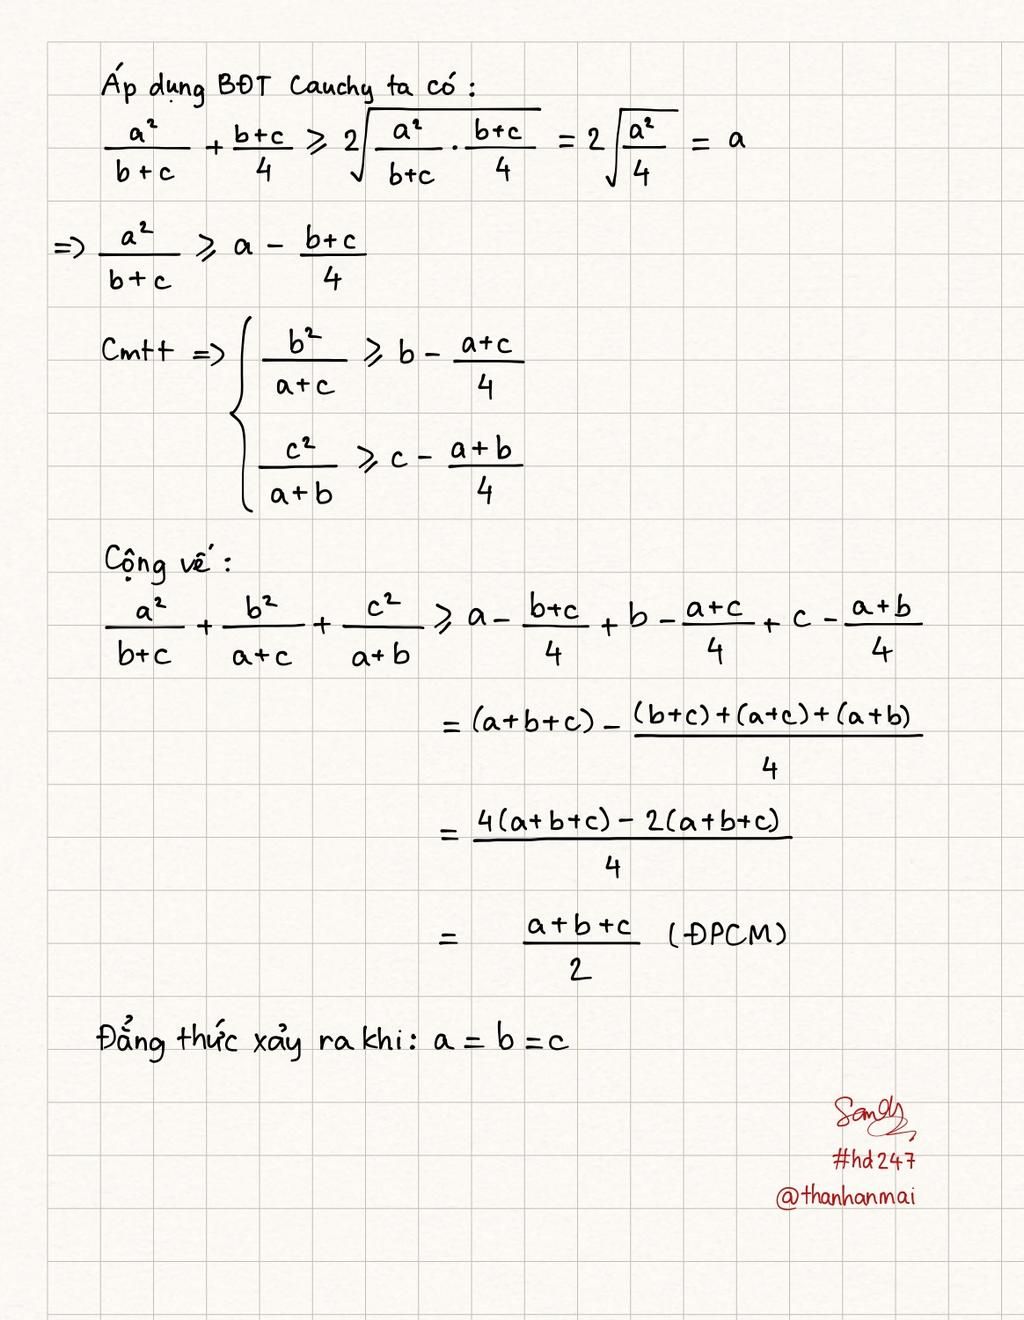 Áp dụng BĐT Cauchy ta có :
a²/(b+c) + (b+c)/4 ⩾ 2√(a²/(b+c) . (b+c)/4) = 2√(a²/4) = a
=> a²/(b+c) ⩾ a - (b+c)/4
Cmtt => { b²/(a+c) ⩾ b - (a+c)/4
c²/(a+b) ⩾ c - (a+b)/4
Cộng vế :
a²/(b+c) + b²/(a+c) + c²/(a+b) ⩾ a - (b+c)/4 + b - (a+c)/4 + c - (a+b)/4
= (a+b+c) - ((b+c)+(a+c)+(a+b))/4
= (4(a+b+c) - 2(a+b+c))/4
= (a+b+c)/2 (ĐPCM)
Đẳng thức xảy ra khi: a = b = c
Sandy
#hd247
@thanhanmai